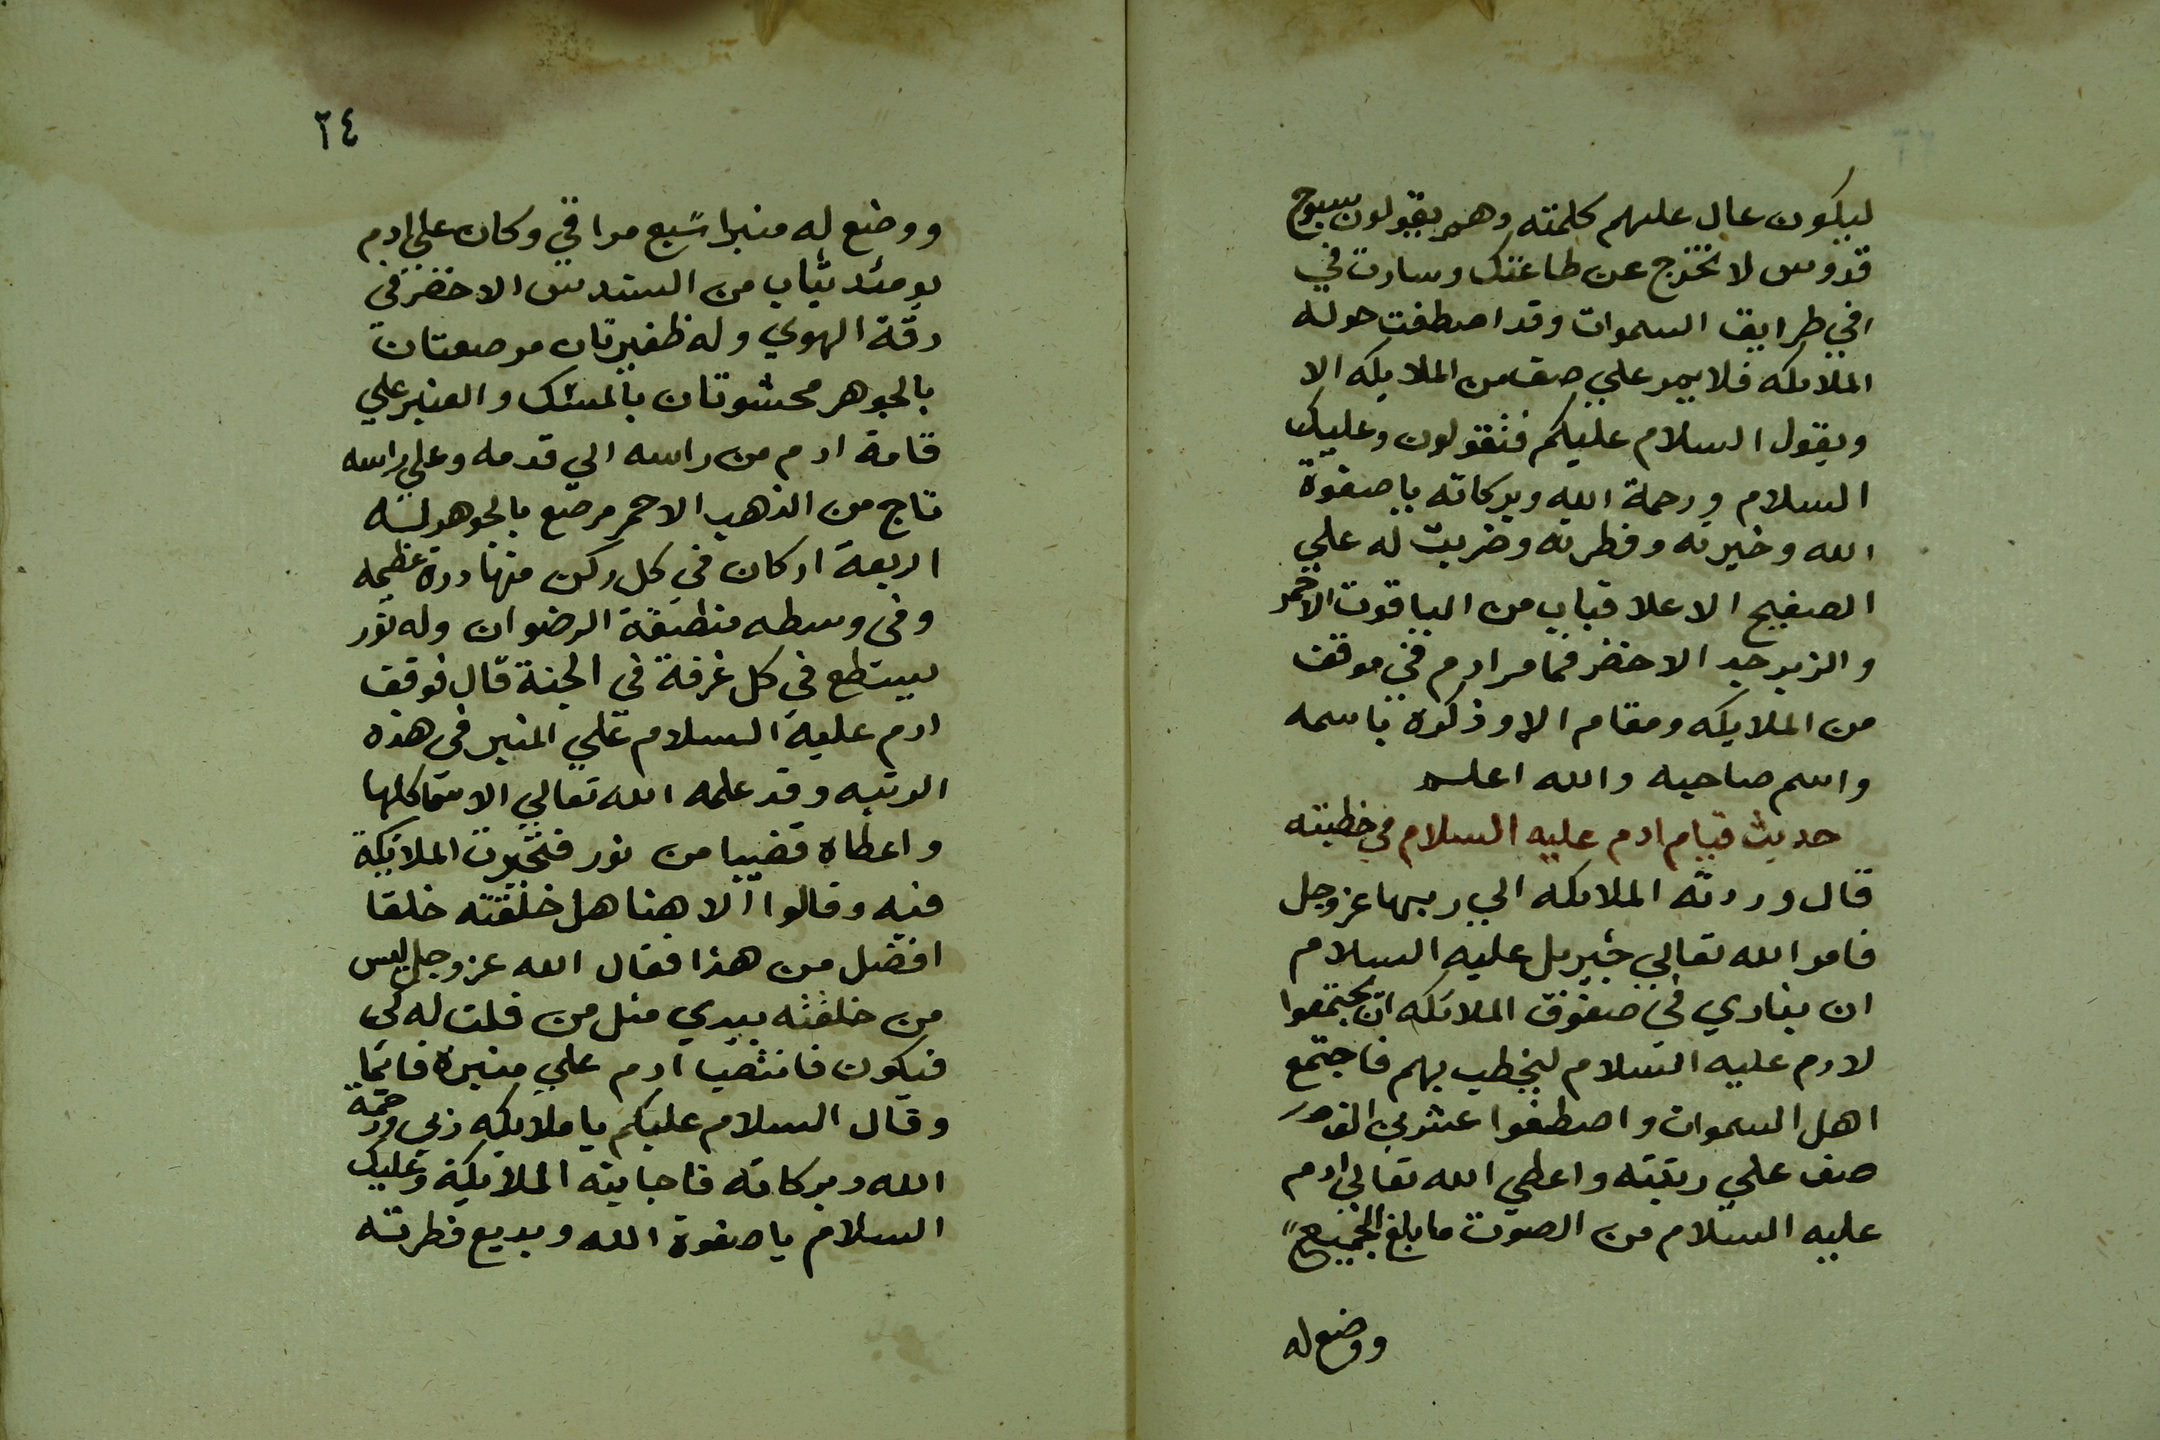 ليكون عال عليهم كلمته وهم يقولون سبوح
قدوس لا نخرج عن طاعتك وسارت في
افي طرايق السموات وقد اصطفت حوله
الملايكه فلا يمر علي صف من الملايكه الا
ويقول السلام عليكم فتقولون وعليك
السلام ورحمة الله وبركاته يا صفوة
الله وخيرته وفطرته وضربت له علي
الصفيح الاعلا قباب من الياقوت الاحمر
والزبرجد الاخضر فما مر ادم في موقف
من الملايكه ومقام الا وذكره باسمه
واسم صاحبه والله اعلم
حديث قيام ادم عليه السلام في خطبته
قال وردته الملايكه الي ربها عز وجل
فامر الله تعالي جبريل عليه السلام
ان ينادي في صفوف الملائكه ان يجتمعوا
لادم عليه السلام ليخطب بهم فاجتمع
اهل السموات واصطفوا عشرين الف
صف علي رتبته واعطي الله تعالي ادم
عليه السلام من الصوت ما بلغ الجميع
ووضع له
٢٤
ووضع له منبرا سبع مراقي وكان علي ادم
يومئذ ثياب من السندس الاخضر في
رقة الهوي وله ظفيرتان مرصعتان
بالجوهر محشوتان بالمسك والعنبر علي
قامة ادم من راسه الي قدمه وعلي راسه
تاج من الذهب الاحمر مرصع بالجوهر له
اربعة اركان في كل ركن منها درة عظيمه
وفي وسطه منطقة الرضوان وله نور
يسطع في كل غرفة في الجنة قال فوقف
ادم عليه السلام علي المنبر في هذه
الرتبه وقد علمه الله تعالي الاسما كلها
واعطاه قضيبا من نور فتحيرت الملائكة
فيه وقالوا الاهنا هل خلقته خلقا
افضل من هذا فقال الله عز وجل ليس
من خلقته بيدي مثل من قلت له كن
فيكون فانتصب ادم علي منبره قائما
وقال السلام عليكم يا ملايكه ربي ورحمة
الله وبركاته فاجابته الملايكة وعليك
السلام يا صفوة الله وبديع فطرته